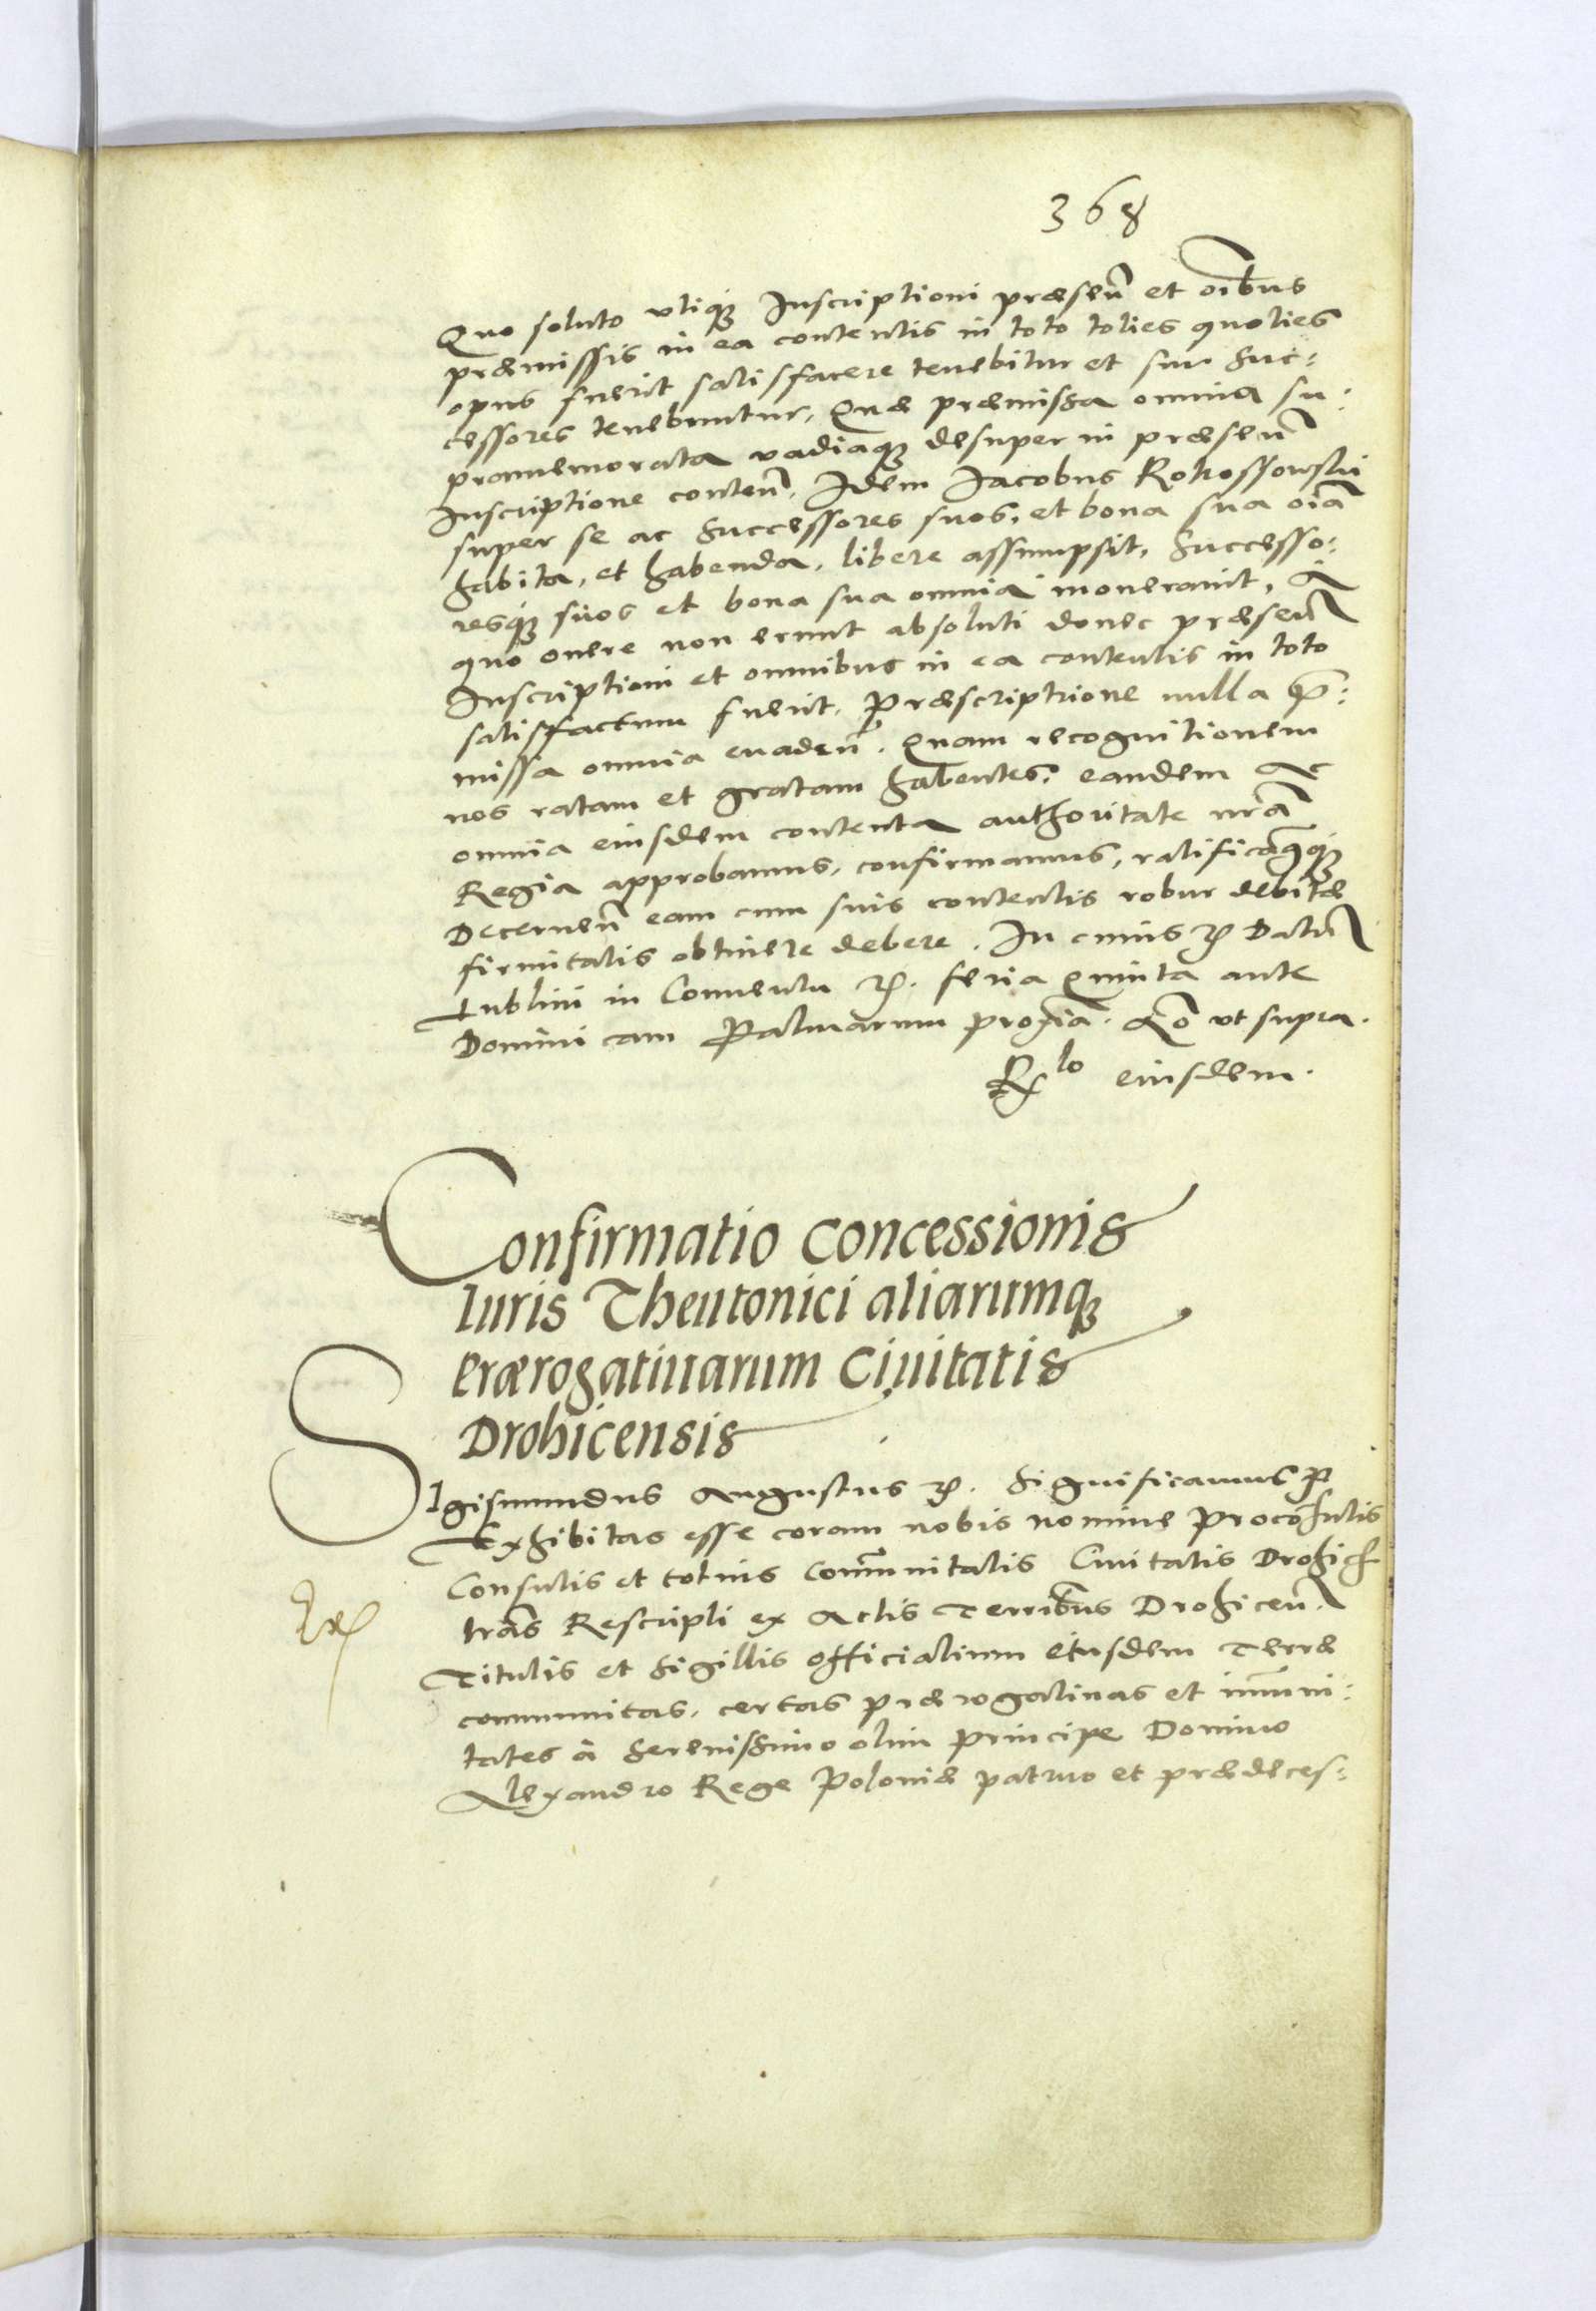 368
Quo soluto vtiq́ꝫ Inscriptioni præsen̄ et oībus
præmissis in ea contentis in toto toties quoties
opus fuerit satisfacere tenebitur et sui suc:
cessores tenebuntur. Quæ præmissa omnia su:
pramemorata vadiaqꝫ desuper in præsen̄
Inscriptione conten̄. Idem Jacobus Rokossowski
super se ac successores suos, et bona sua oīa
habita, et habenda, libere assumpsit, successo:
resq́ꝫ suos et bona sua omnia inoneravit, à
quo onere non erunt absoluti donec præsen̄
Inscriptioni et omnibus in ea contentis in toto
satisfactum fuerit. Præscriptione nulla p̄:
missa omnia evaden̄. Quam recognitionem
nos ratam et gratam habentes, eandem ac
omnia eiusdem contenta authoritate nr̄a
Regia approbamus, confirmamus, ratificāqꝫ
Decernen̄ eam cum suis contentis robur debitæ
firmitatis obtinere debere. In cuius ꝛc̄ Datū
Lublini in Conuentu ꝛc̄. feria Quinta ante
Dominicam Palmarum prox̄ia. Ao vt supra.
Rlo eiusdem.
Confirmatio Concessionis
Iuris Theutonici aliarumqꝫ
Prærogatiuarum Ciuitatis
Drohicensis
SIgismundus Augustus ꝛc̄. Significamus ꝛc̄
Exhibitas esse coram nobis nomine Procōsulis
Consulis et totius Com̄unitatis Ciuitatis Drohicen̄
lrās Rescripti ex Actis Terrībus Drohicen̄.
Titulis et Sigillis officialium eiusdem Terræ
communitas, certas prærogatiuas et im̄uni:
tates à Serenissimo olim Principe Domino
Alexandro Rege Poloniæ patruo et prædeces: